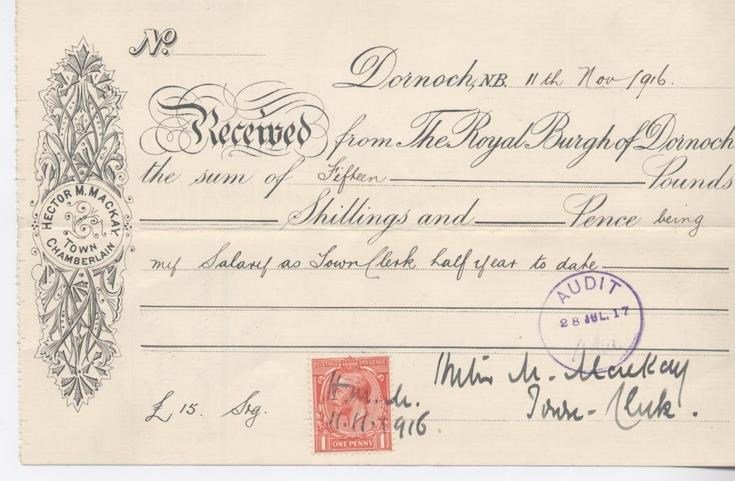 No.
Dornoch, N.B. 11th Nov 1916.
Received from The Royal Burgh of Dornoch
the sum of Fifteen Pounds
Shillings and Pence being
my Salary as Town Clerk half year to date
HECTOR M. MACKAY
TOWN
CHAMBERLAIN
AUDIT
28 JUL. 17
£ 15. Stg.
POSTAGE REVENUE
ONE PENNY
H.M.M.
11.11.1916
Hector M. Mackay
Town-Clerk.